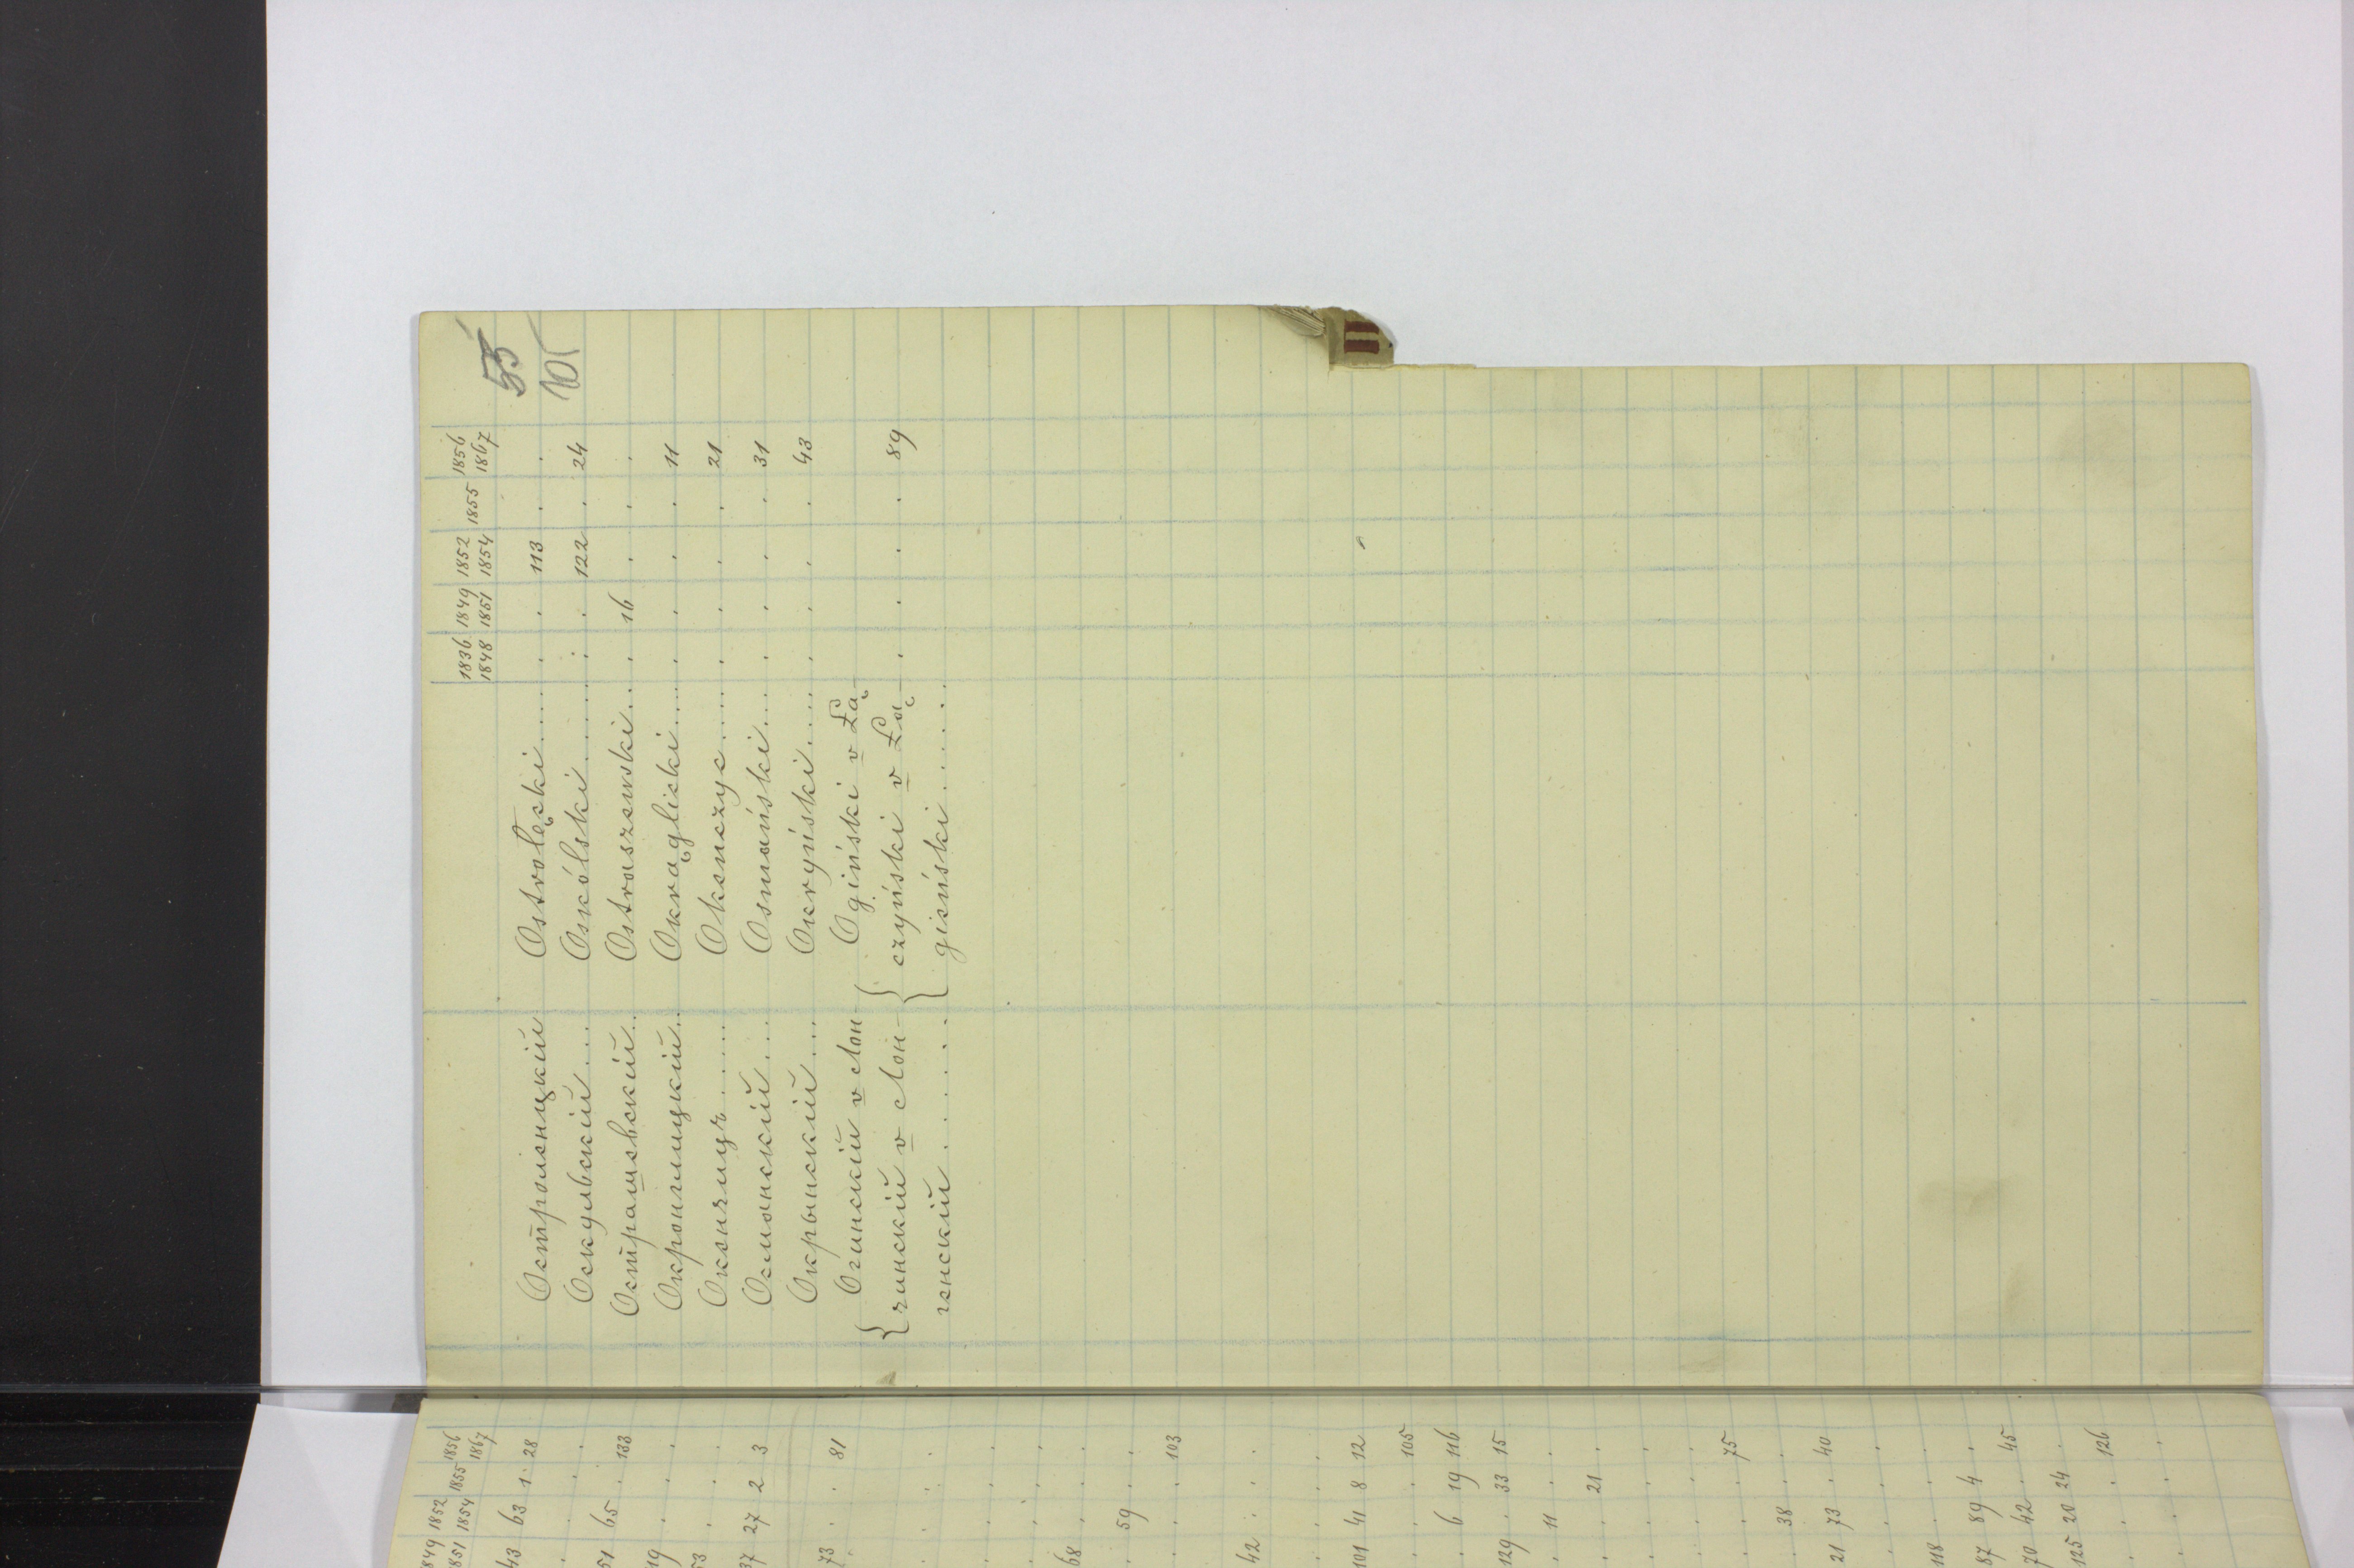 55
101
1836 1849 1852 1855 1856
1848 1851 1854 1867
Остроленцкій Ostrołęcki . . 113 . .
Оскульскій Oskólski . . 122 . 24
Острашевскій Ostraszewski . 16 . . .
Окронглицкій Okrąglicki . . . . 11
Оксенчиц Oksenczyc . . . . 21
Осмонскій Osmański . . . . 31
Окрынскій Okryński . . . . 43
Огинскій v Лон- Ogiński v Łą-
чинскій v Лон- czyński v Łą- . . . . 89
генскій gieński
1849 1852 1855 1856
1851 1854 1867
43 63 1 28
. . . .
51 65 . 133
19 . . .
53 . . .
37 27 2 3
73 . . 81
68 . . .
. 59 . .
. . . 103
42 . . .
101 41 8 12
. . . 105
. 6 19 116
129 . 33 15
. 11 . .
. . 21 .
. . . 75
. 38 . .
21 73 . 40
118 . . .
87 89 4 .
70 42 . 45
125 20 24 .
. . . 126